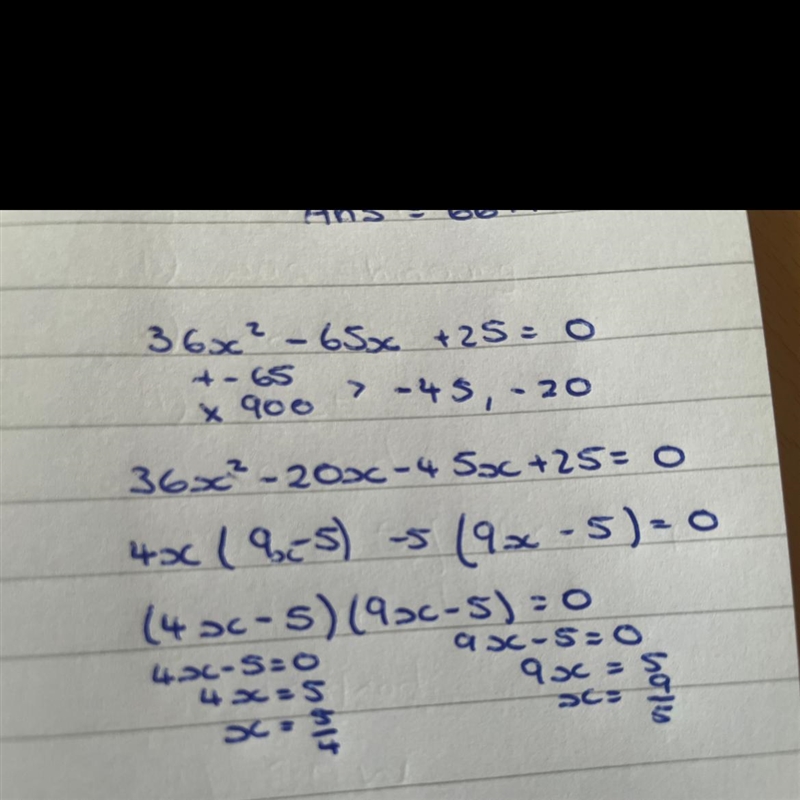 36x² - 65x + 25 = 0
+ - 65
× 900 > -45, -20
36x² - 20x - 45x + 25 = 0
4x(9x-5) -5(9x - 5) = 0
(4x - 5)(9x - 5) = 0
4x - 5 = 0
4x = 5
x = 5/4
9x - 5 = 0
9x = 5
x = 9/5